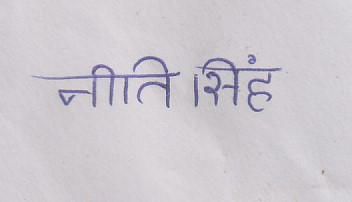 नीति सिंह